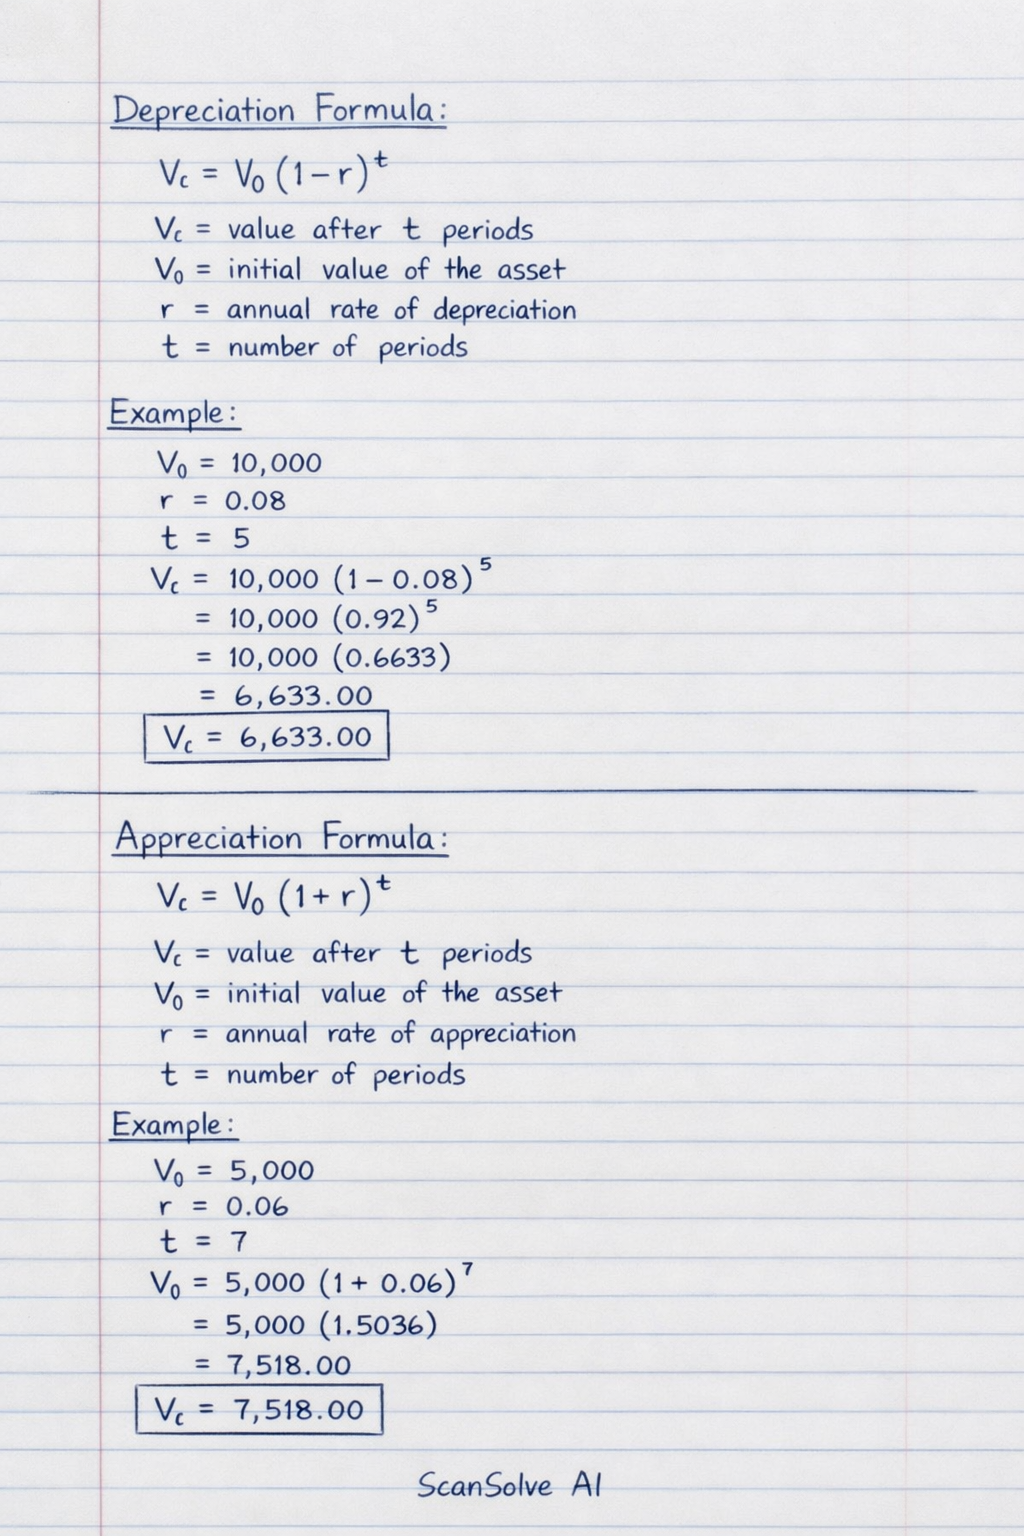 Depreciation Formula:
V_c = V_0 (1 - r)^t
V_c = value after t periods
V_0 = initial value of the asset
r = annual rate of depreciation
t = number of periods
Example:
V_0 = 10,000
r = 0.08
t = 5
V_c = 10,000 (1 - 0.08)^5
= 10,000 (0.92)^5
= 10,000 (0.6633)
= 6,633.00
V_c = 6,633.00
Appreciation Formula:
V_c = V_0 (1 + r)^t
V_c = value after t periods
V_0 = initial value of the asset
r = annual rate of appreciation
t = number of periods
Example:
V_0 = 5,000
r = 0.06
t = 7
V_0 = 5,000 (1 + 0.06)^7
= 5,000 (1.5036)
= 7,518.00
V_c = 7,518.00
ScanSolve AI